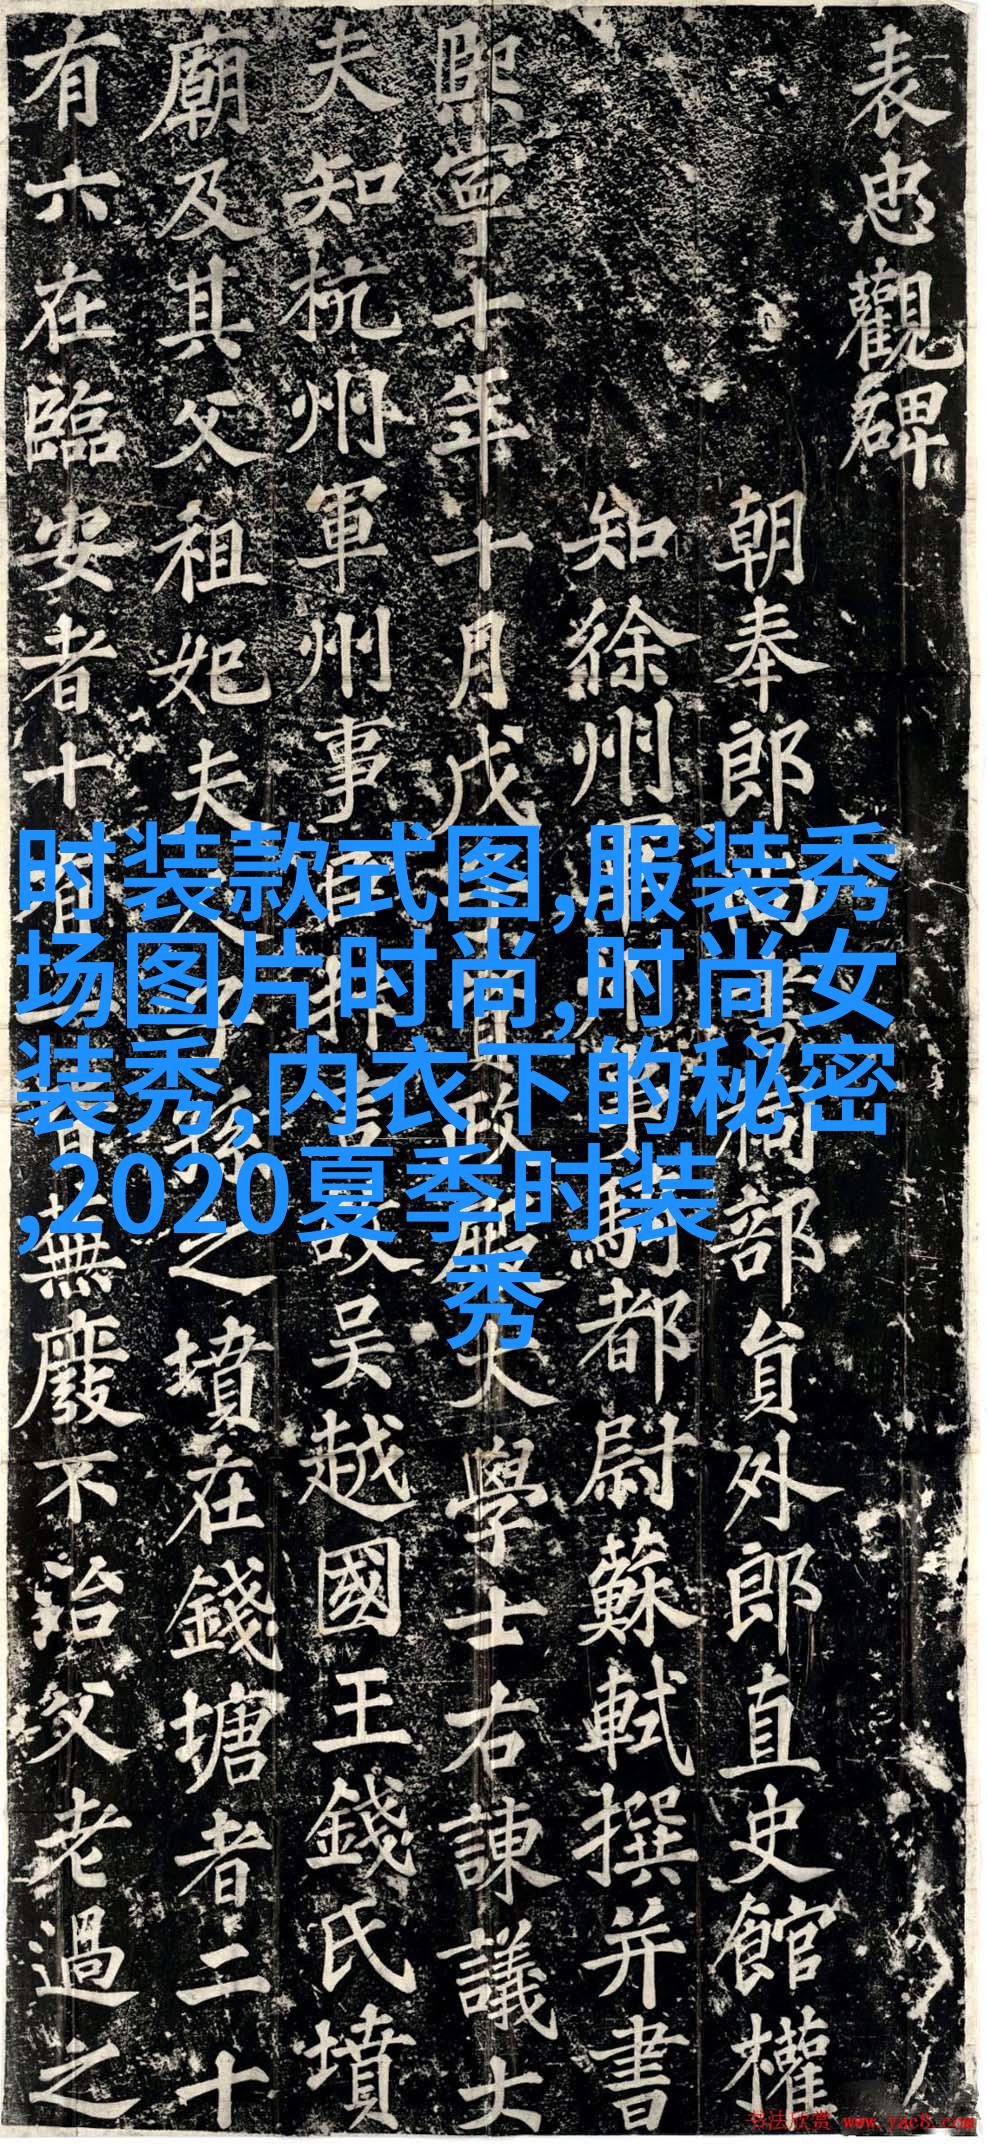 表忠觀碑
朝奉郎尚書祠部員外郎直史館權
知徐州軍州事騎都尉蘇軾撰并書
熙寧十年十月戊子資政殿大學士右諫議大
夫知杭州軍州事臣抃言故吳越國王錢氏墳
廟及其父祖妃夫人子孫之墳在錢塘者二十
有六在臨安者十有一皆蕪廢不治父老過之
时装款式图,服装秀
场图片时尚,时尚女
装秀,内衣下的秘密
,2020夏季时装
秀
书法欣赏 www.yac8.com